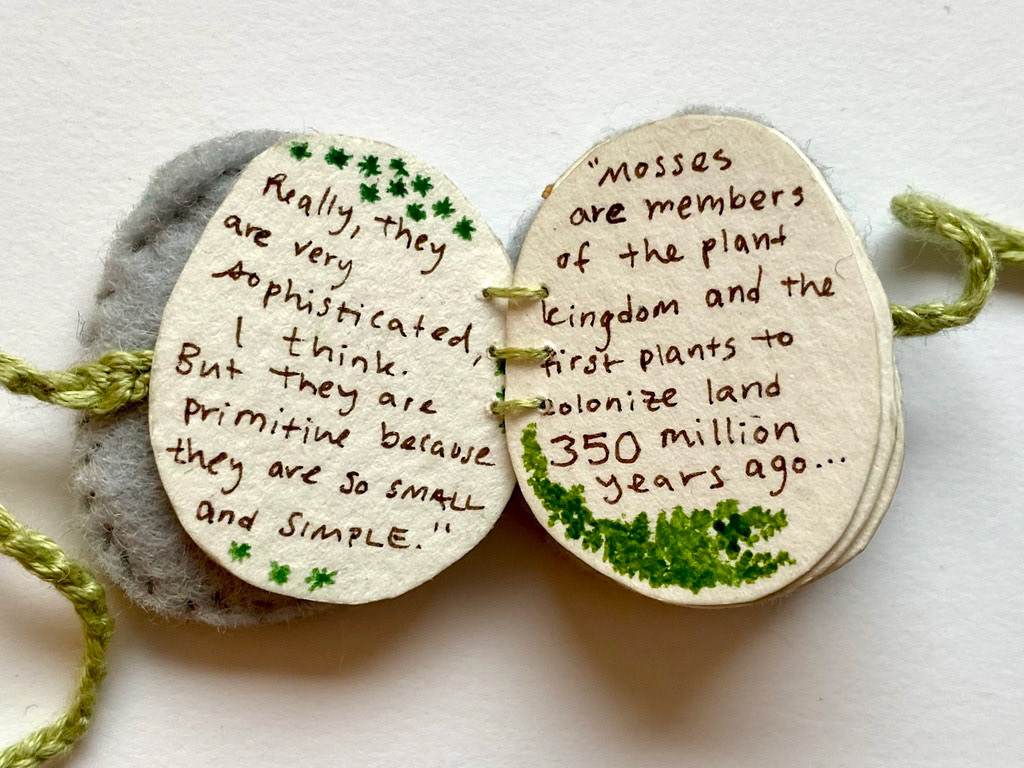 Really, they
are very
sophisticated,
I think.
But they are
primitive because
they are so SMALL
and SIMPLE."
"Mosses
are members
of the plant
kingdom and the
first plants to
colonize land
350 million
years ago...